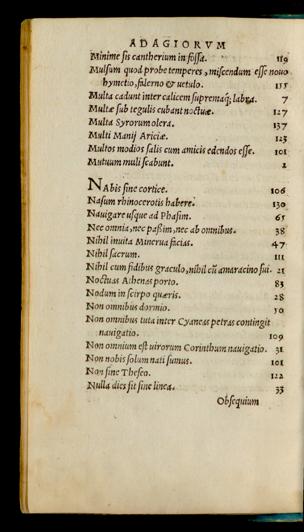 ADAGIORVM
Minime sis cantherium in fossa. 119
Mulsum quod probe temperes, miscendum esse nouo
hymetio, falerno & uetulo. 155
Multa cadunt inter calicem supremaq; labra. 7
Multæ sub tegulis cubant noctuæ. 127
Multa Syrorum olera. 137
Multi Manij Ariciæ. 123
Multos modios salis cum amicis edendos esse. 101
Mutuum muli scabunt. 2
NAbis sine cortice. 106
Nasum rhinocerotis habere. 130
Nauigare usque ad Phasim. 65
Nec omnia, nec passim, nec ab omnibus. 38
Nihil inuita Minerua facias. 47
Nihil sacrum. 111
Nihil cum fidibus graculo, nihil cũ amaracino sui. 21
Noctuas Athenas porto. 83
Nodum in scirpo quæris. 28
Non omnibus dormio. 50
Non omnibus tuta inter Cyaneas petras contingit
nauigatio. 109
Non omnium est uirorum Corinthum nauigatio. 31
Non nobis solum nati sumus. 101
Non sine Theseo. 122
Nulla dies sit sine linea. 33
Obsequium